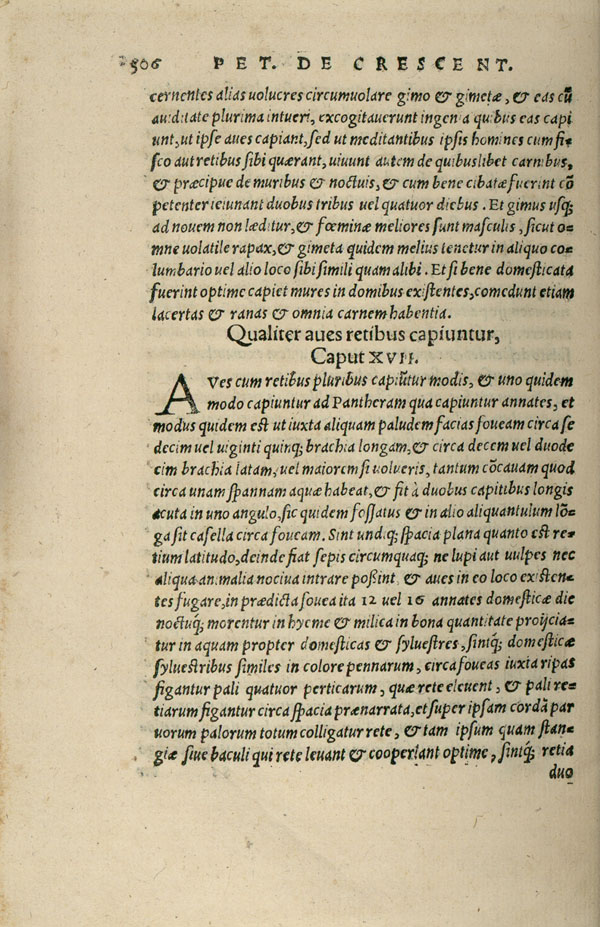 506 PET. DE CRESCENT.
cernentes alias uolucres circumuolare gimo & gimetæ, & eas cū
auiditate plurima intueri, excogitauerunt ingenia quibus eas capi
unt, ut ipse aues capiant, sed ut meditantibus ipsis homines cum fi=
sco aut retibus sibi quærant, uiuunt autem de quibuslibet carnibus,
& præcipue de muribus & noctuis, & cum bene cibatæ fuerint cō
petenter ieiunant duobus tribus uel quatuor diebus. Et gimus usq;
ad nouem non læditur, & fœminæ meliores sunt masculis, sicut o=
mne uolatile rapax, & gimeta quidem melius tenetur in aliquo co=
lumbario uel alio loco sibi simili quam alibi. Et si bene domesticata
fuerint optime capiet mures in domibus existentes, comedunt etiam
lacertas & ranas & omnia carnem habentia.
Qualiter aues retibus capiuntur,
Caput XVII.
AVes cum retibus pluribus capiūtur modis, & uno quidem
modo capiuntur ad Pantheram qua capiuntur annates, et
modus quidem est ut iuxta aliquam paludem facias foueam circa se
decim uel uiginti quinq; brachia longam, & circa decem uel duode
cim brachia latam, uel maiorem si uolueris, tantum cōcauam quod
circa unam spannam aquæ habeat, & fit à duobus capitibus longis
acuta in uno angulo, sic quidem fossatus & in alio aliquantulum lō=
ga sit casella circa foueam. Sint undiq; spacia plana quanto est re=
tium latitudo, deinde fiat sepis circumquaq; ne lupi aut uulpes nec
aliqua animalia nociua intrare possint, & aues in eo loco existen=
tes fugare, in prædicta fouea ita 12 uel 16 annates domesticæ die
noctuq; morentur in hyeme & milica in bona quantitate proijcia=
tur in aquam propter domesticas & syluestres, sintq; domesticæ
syluestribus similes in colore pennarum, circa foueas iuxta ripas
figantur pali quatuor perticarum, quæ rete eleuent, & pali re=
tiarum figantur circa spacia prænarrata, et super ipsam cordā par
uorum palorum totum colligatur rete, & tam ipsum quam stan=
giæ siue baculi qui rete leuant & cooperiant optime, sintq; retia
duo